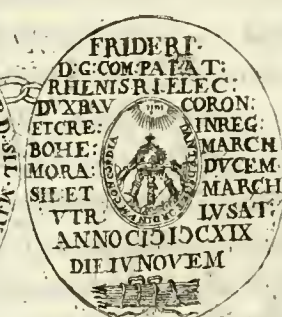 FRIDERI·
D:G:COM:PALAT:
RHENIS·R·I·ELEC:
DVXBAV CORON:
ETCRE: INREG:
BOHE: MARCH
MORA: DVCEM
SIL·ET MARCH
VTR LVSAT·
ANNO CIↃIↃCXIX
DIE IV NOVEM
CONCORDIA